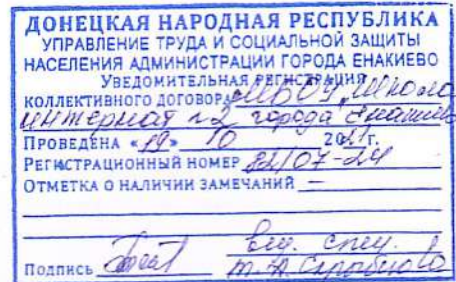 ДОНЕЦКАЯ НАРОДНАЯ РЕСПУБЛИКА
УПРАВЛЕНИЕ ТРУДА И СОЦИАЛЬНОЙ ЗАЩИТЫ
НАСЕЛЕНИЯ АДМИНИСТРАЦИИ ГОРОДА ЕНАКИЕВО
УВЕДОМИТЕЛЬНАЯ РЕГИСТРАЦИЯ
КОЛЛЕКТИВНОГО ДОГОВОРА МБОУ "Школа
интернат №2 города Енакиево
ПРОВЕДЕНА «19» 10 2021г.
РЕГИСТРАЦИОННЫЙ НОМЕР 82/07-24
ОТМЕТКА О НАЛИЧИИ ЗАМЕЧАНИЙ —
вед. спец.
ПОДПИСЬ